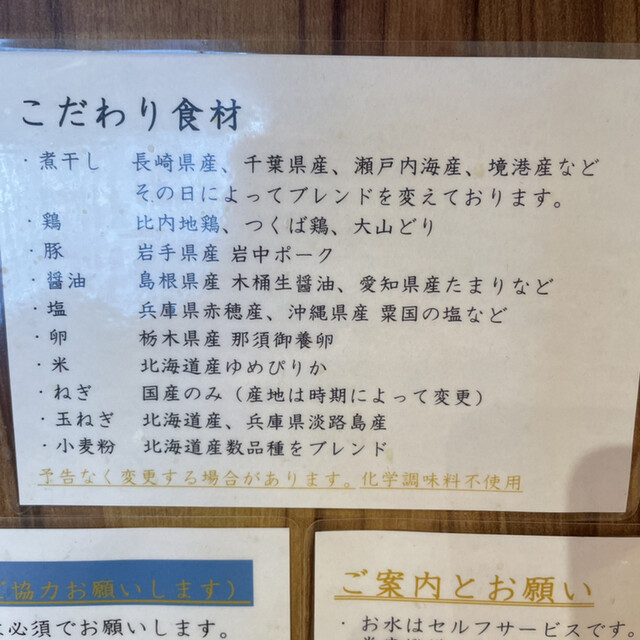 こだわり食材
・煮干し 長崎県産、千葉県産、瀬戸内海産、境港産など
その日によってブレンドを変えております。
・鶏 比内地鶏、つくば鶏、大山どり
・豚 岩手県産 岩中ポーク
・醤油 島根県産 木桶生醤油、愛知県産たまりなど
・塩 兵庫県赤穂産、沖縄県産 粟国の塩など
・卵 栃木県産 那須御養卵
・米 北海道産ゆめぴりか
・ねぎ 国産のみ（産地は時期によって変更）
・玉ねぎ 北海道産、兵庫県淡路島産
・小麦粉 北海道産数品種をブレンド
予告なく変更する場合があります。化学調味料不使用
ご協力お願いします）
必須でお願いします。
ご案内とお願い
・お水はセルフサービスです